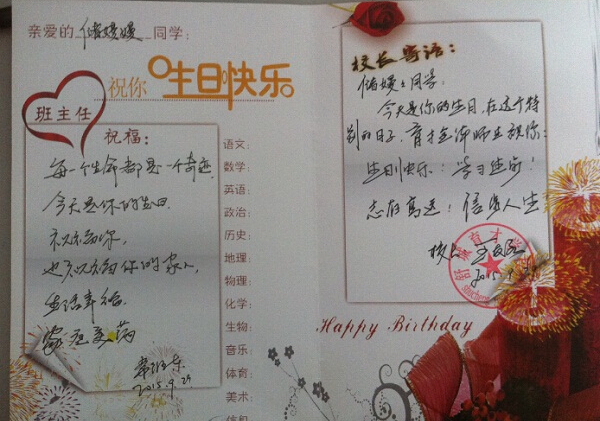 亲爱的 储媛媛 同学：
祝你 生日快乐
班主任
祝福：
每一个生命都是一个奇迹
今天是你的生日
祝福你
也祝福你的家人
生活幸福
家庭美满
2015.9.29
语文：
数学：
英语：
政治：
历史：
地理：
物理：
化学：
生物：
音乐：
体育：
美术：
校长寄语：
储媛媛同学：
今天是你的生日，在这个特
别的日子，育才全体师生祝你：
生日快乐！学习进步！
志存高远！
校长
育才
Happy Birthday